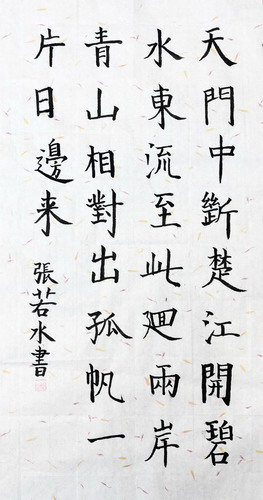 天門中斷楚江開碧
水東流至此迴兩岸
青山相對出孤帆一
片日邊来
張若水書